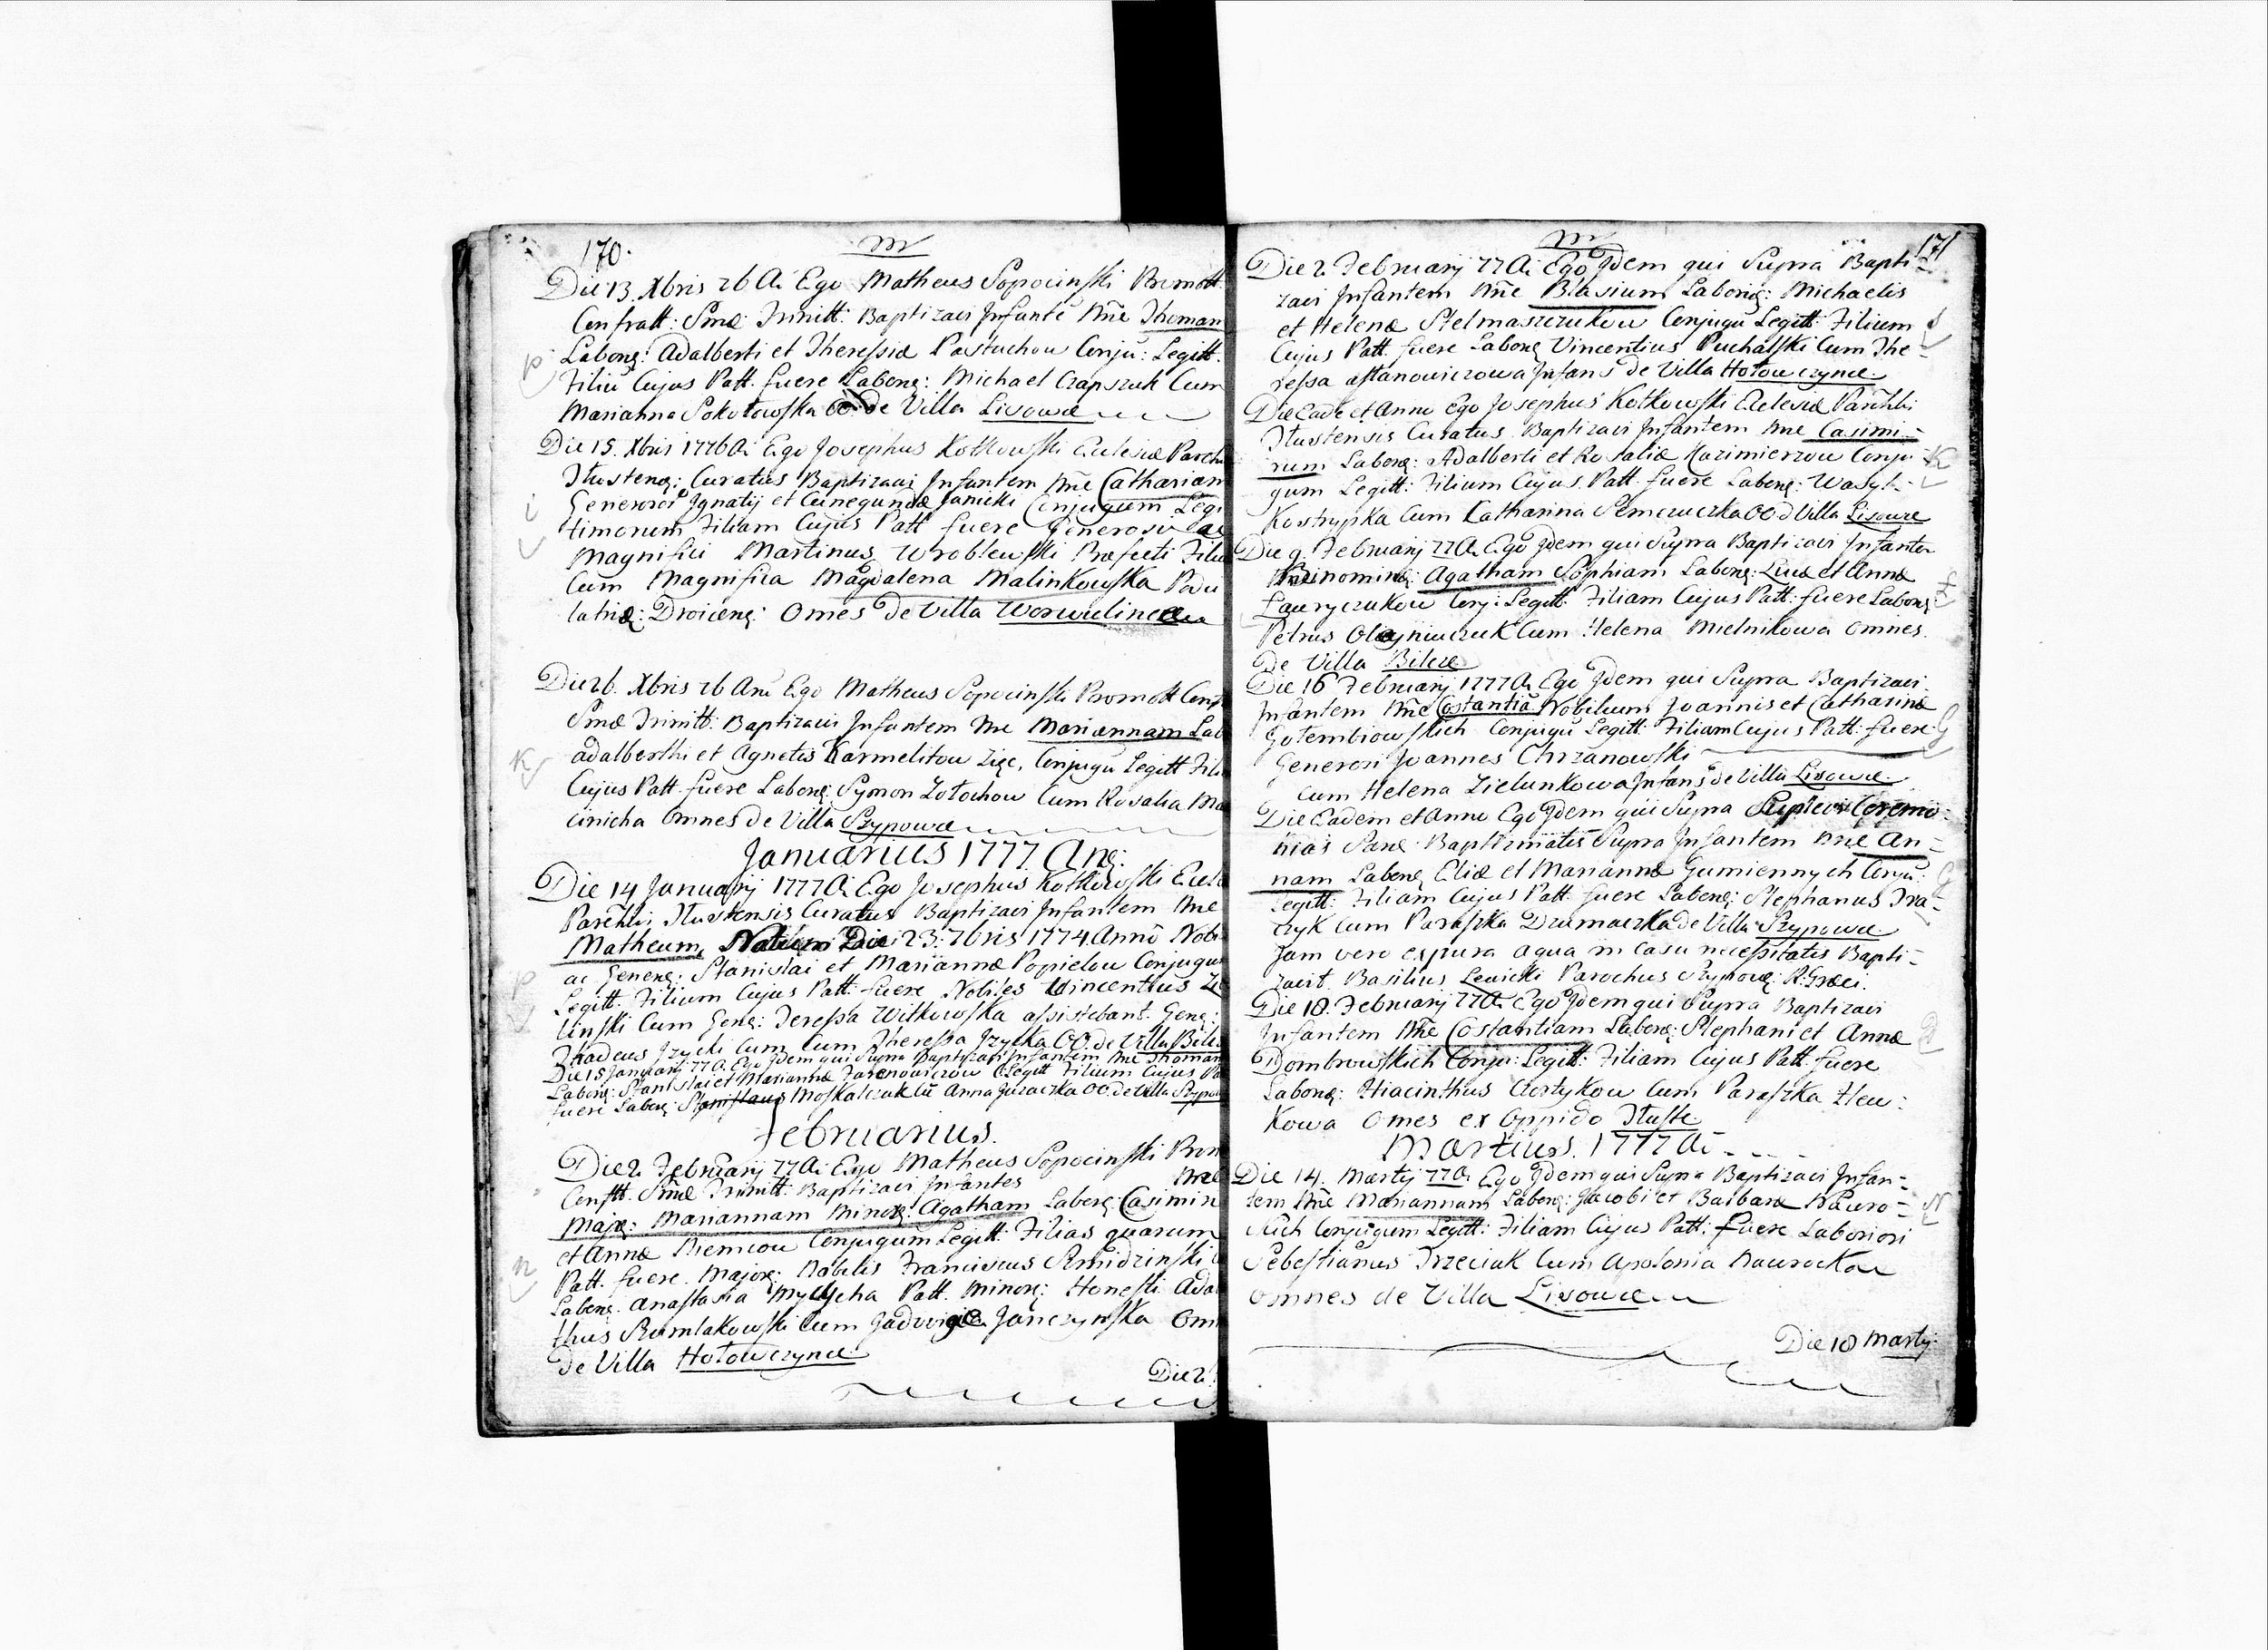 170.
m
Die 13. Xbris 76 Ai Ego Matheus Sopocinski Promott.
Confratt: Smæ Trinitt: Baptizavi Infantē Nñe Thomam
Laborq: Adalberti et Theressiæ Pastuchow Conju: Legitt.
Filiū Cujus Patt. fuere Laborq: Michael Czapszuk Cum
Marianna Sokołowska OO. de Villa Lisowce
Die 15. Xbris 1776 Ai Ego Josephus Kotkowski Eclesiæ Parch
Tłustenq: Curatus Baptizavi Infantem Nñe Catharian
Generosoꝝ Ignatij et Cunegundæ Janicki Conjugum Legi
timorum Filiam Cujus Patt fuere Generosi ac
Magnifici Martinus Wroblewski Præfecti Filiu
Cum Magnifica Magdalena Malinkowska Podu
latriæ: Droicenq: Omes de Villa Worwulince
Die 26. Xbris 76 Ani Ego Matheus Sopocinski Promott Conf
Smæ Trinitt: Baptizavi Infantem Nñe Mariannam Lab
adalberthi et Agnetis Karmelitow Conjugū Legitt Fili
Cujus Patt. fuere Laborq: Symon Zołochow Cum Rosalia Ma
cinicha Omnes de Villa Szypowce
Januarius 1777 Anq:
Die 14 Januarij 1777 Ai Ego Josephus Kotkowski Ecle
Parchli: Tłustensis Curatus Baptizavi Infantem Nñe
Matheum, Natum Die 23: 7bris 1774 Anno Nobi
ac Generq: Stanislai et Mariannæ Popielow Conjugum
Legitt. Filium Cujus Patt. fuere Nobiles Wincentius Zi
linski Cum Genq: Teressa Witkowska assistebant. Genq:
Thadeus Jzycki Cum Cum Theressa Jzycka OO. de Villa Bilcz
Die 15 Januarij 77 A. Ego Idem qui Supra Baptizavi Infantem Nñe Thomam
Laborq: Stanislai et Mariannæ Legitt Filium Cujus Pa
fuere Laborq: Stanislaus Moskalczuk Cū Anna OO. de Villa Szypow
Februarius.
Die 2. Februarij 77 Ai Ego Matheus Sopocinski Prom
Confftt. Smæ Trinitt: Baptizavi Infantes Nñe
Majoꝝ: Mariannam Minoꝝ: Agatham Laborq: Casimiri
et Annæ Niemcow Conjugum Legitt: Filias quarum
Patt. fuere. Majorq: Nobilis Franciscus Smidzinski C
Laborq. Anastasia Patt. Minorq: Honesti Adal
thus Rumlakowski Cum Jadwiga Janczynska Omn
de Villa Hołowczynce
Die 2.
m
171
Die 2. Februarij 77 Ai Ego Idem qui Supra Bapti-
zavi Infantem Nñe Blasium Laborioq: Michaelis
et Helenæ Stelmaszczukow Conjugū Legitt: Filium
Cujus Patt. fuere Laborq Vincentius Puchalski Cum The-
ressa astanowiczowa Infans de Villa Hołowczynce.
Die Eadē et Anno Ego Josephus Kotkowski Eclesiæ Parchli
Tłustensis Curatus Baptizavi Infantem Nñe Casimi-
rum Laborq: Adalberti et Rosaliæ Kazimierzow Conju-
gum Legitt: Filium Cujus. Patt. fuere Laborq: Wasyl-
Kostrypka Cum Catharina Semczuczka OO d Villa Lisowce
Die 9. Februarij 77 A. Ego Idem qui Supra Baptizavi Infantem
Agatham Sophiam Laborq: Lucæ et Annæ
Lauryczukow Conj: Legitt: Filiam Cujus Patt: fuere Laborq:
Petrus Oleyniczuk Cum Helena Mielnikowa Omnes.
De Villa Bilcze
Die 16 Februarij 1777 A. Ego Idem qui Supra Baptizavi
Infantem Nñe Costantiā Nobilium Joannis et Catharinæ
Gołembiowskich Conjugū Legitt: Filiam Cujus Patt: fuere
Generosi Joannes Chrzanowski
cum Helena Zielunkowa Infans de Villa Lisowce
Die Eadem et Anno Ego Idem qui Supra Suplevi Ceremo-
nias Sanq: Baptizmatis Supra Infantem Nñe An-
nam Laborq Eliæ et Mariannæ Gumiennych Conju:
Legitt: Filiam Cujus Patt. fuere Laborq: Stephanus Tra-
czyk Cum Paraszka Drumaczka de Villa Szypowce
Jam vero ex pura aqua in casu necessitatis Bapti-
zavit. Basilius Lewicki Parochus Szypowq: R. Græci.
Die 18. Februarij 77 A. Ego Idem qui Supra Baptizavi
Infantem Nñe Costantiam Laborq: Stephani et Annæ
Dombrowskich Conju: Legitt: Filiam Cujus Patt. fuere
Laborq: Hiacinthus Czortykow Cum Paraszka Hew:
kowa Omes ex Oppido Tłuste.
Martius. 1777 Ai
Die 14. Martij 77 A. Ego Idem qui Supra Baptizavi Infan-
tem Nñe Mariannam Laborq: Jacobi et Barbaræ Nawro-
ckich Conjugum Legitt: Filiam Cujus Patt. fuere Laboriosi
Sebestianus Trzeciak Cum Apolonia Nawrocka
omnes de Villa Lisowce
Die 18 Martij.